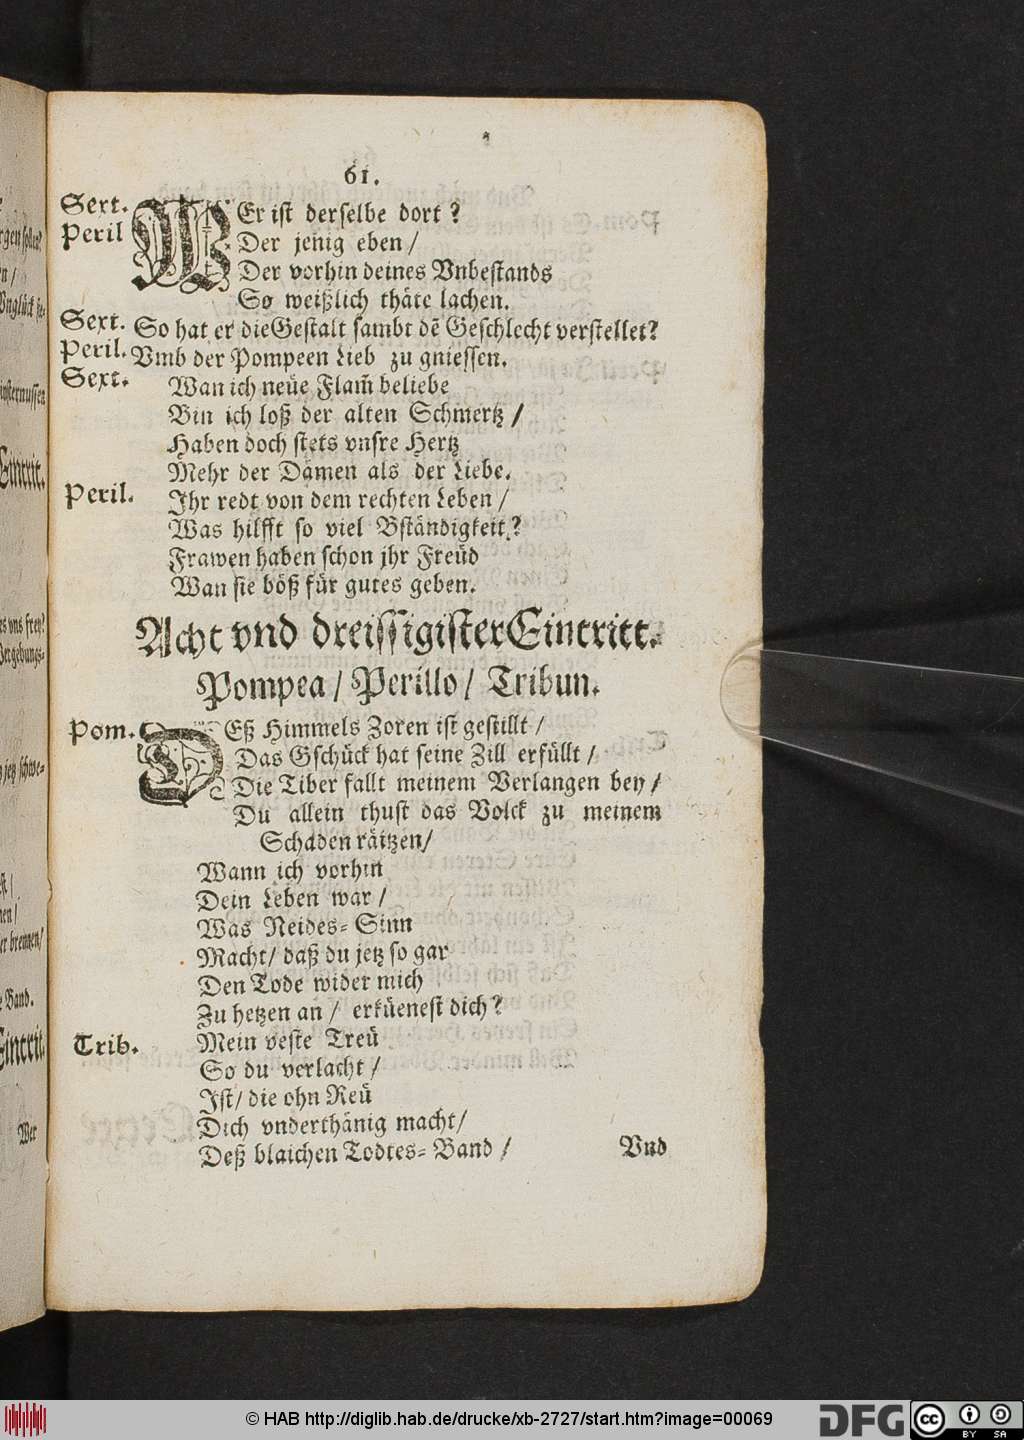 61.
Sext. WEr ist derselbe dort?
Peril Der jenig eben/
Der vorhin deines Vnbestands
So weißlich thäte lachen.
Sext. So hat er die Gestalt sambt dē Geschlecht verstellet?
Peril. Vmb der Pompeen Lieb zu gniessen.
Sext. Wan ich neüe Flam̄ beliebe
Bin ich loß der alten Schmertz/
Haben doch stets vnsre Hertz
Mehr der Dämen als der Liebe.
Peril. Ihr redt von dem rechten Leben/
Was hilfft so viel Bständigkeit?
Frawen haben schon jhr Freüd
Wan sie böß für gutes geben.
Acht vnd dreissigister Eintritt.
Pompea/ Perillo/ Tribun.
Pom. DEß Himmels Zoren ist gestillt/
Das Gschück hat seine Zill erfüllt/
Die Tiber fallt meinem Verlangen bey/
Du allein thust das Volck zu meinem
Schaden räitzen/
Wann ich vorhin
Dein Leben war/
Was Neides-Sinn
Macht/ daß du jetz so gar
Den Tode wider mich
Zu hetzen an/ erküenest dich?
Trib. Mein veste Treü
So du verlacht/
Ist/ die ohn Reü
Dich vnderthänig macht/
Deß blaichen Todtes-Band/
Vnd
© HAB http://diglib.hab.de/drucke/xb-2727/start.htm?image=00069
DFG
cc BY SA